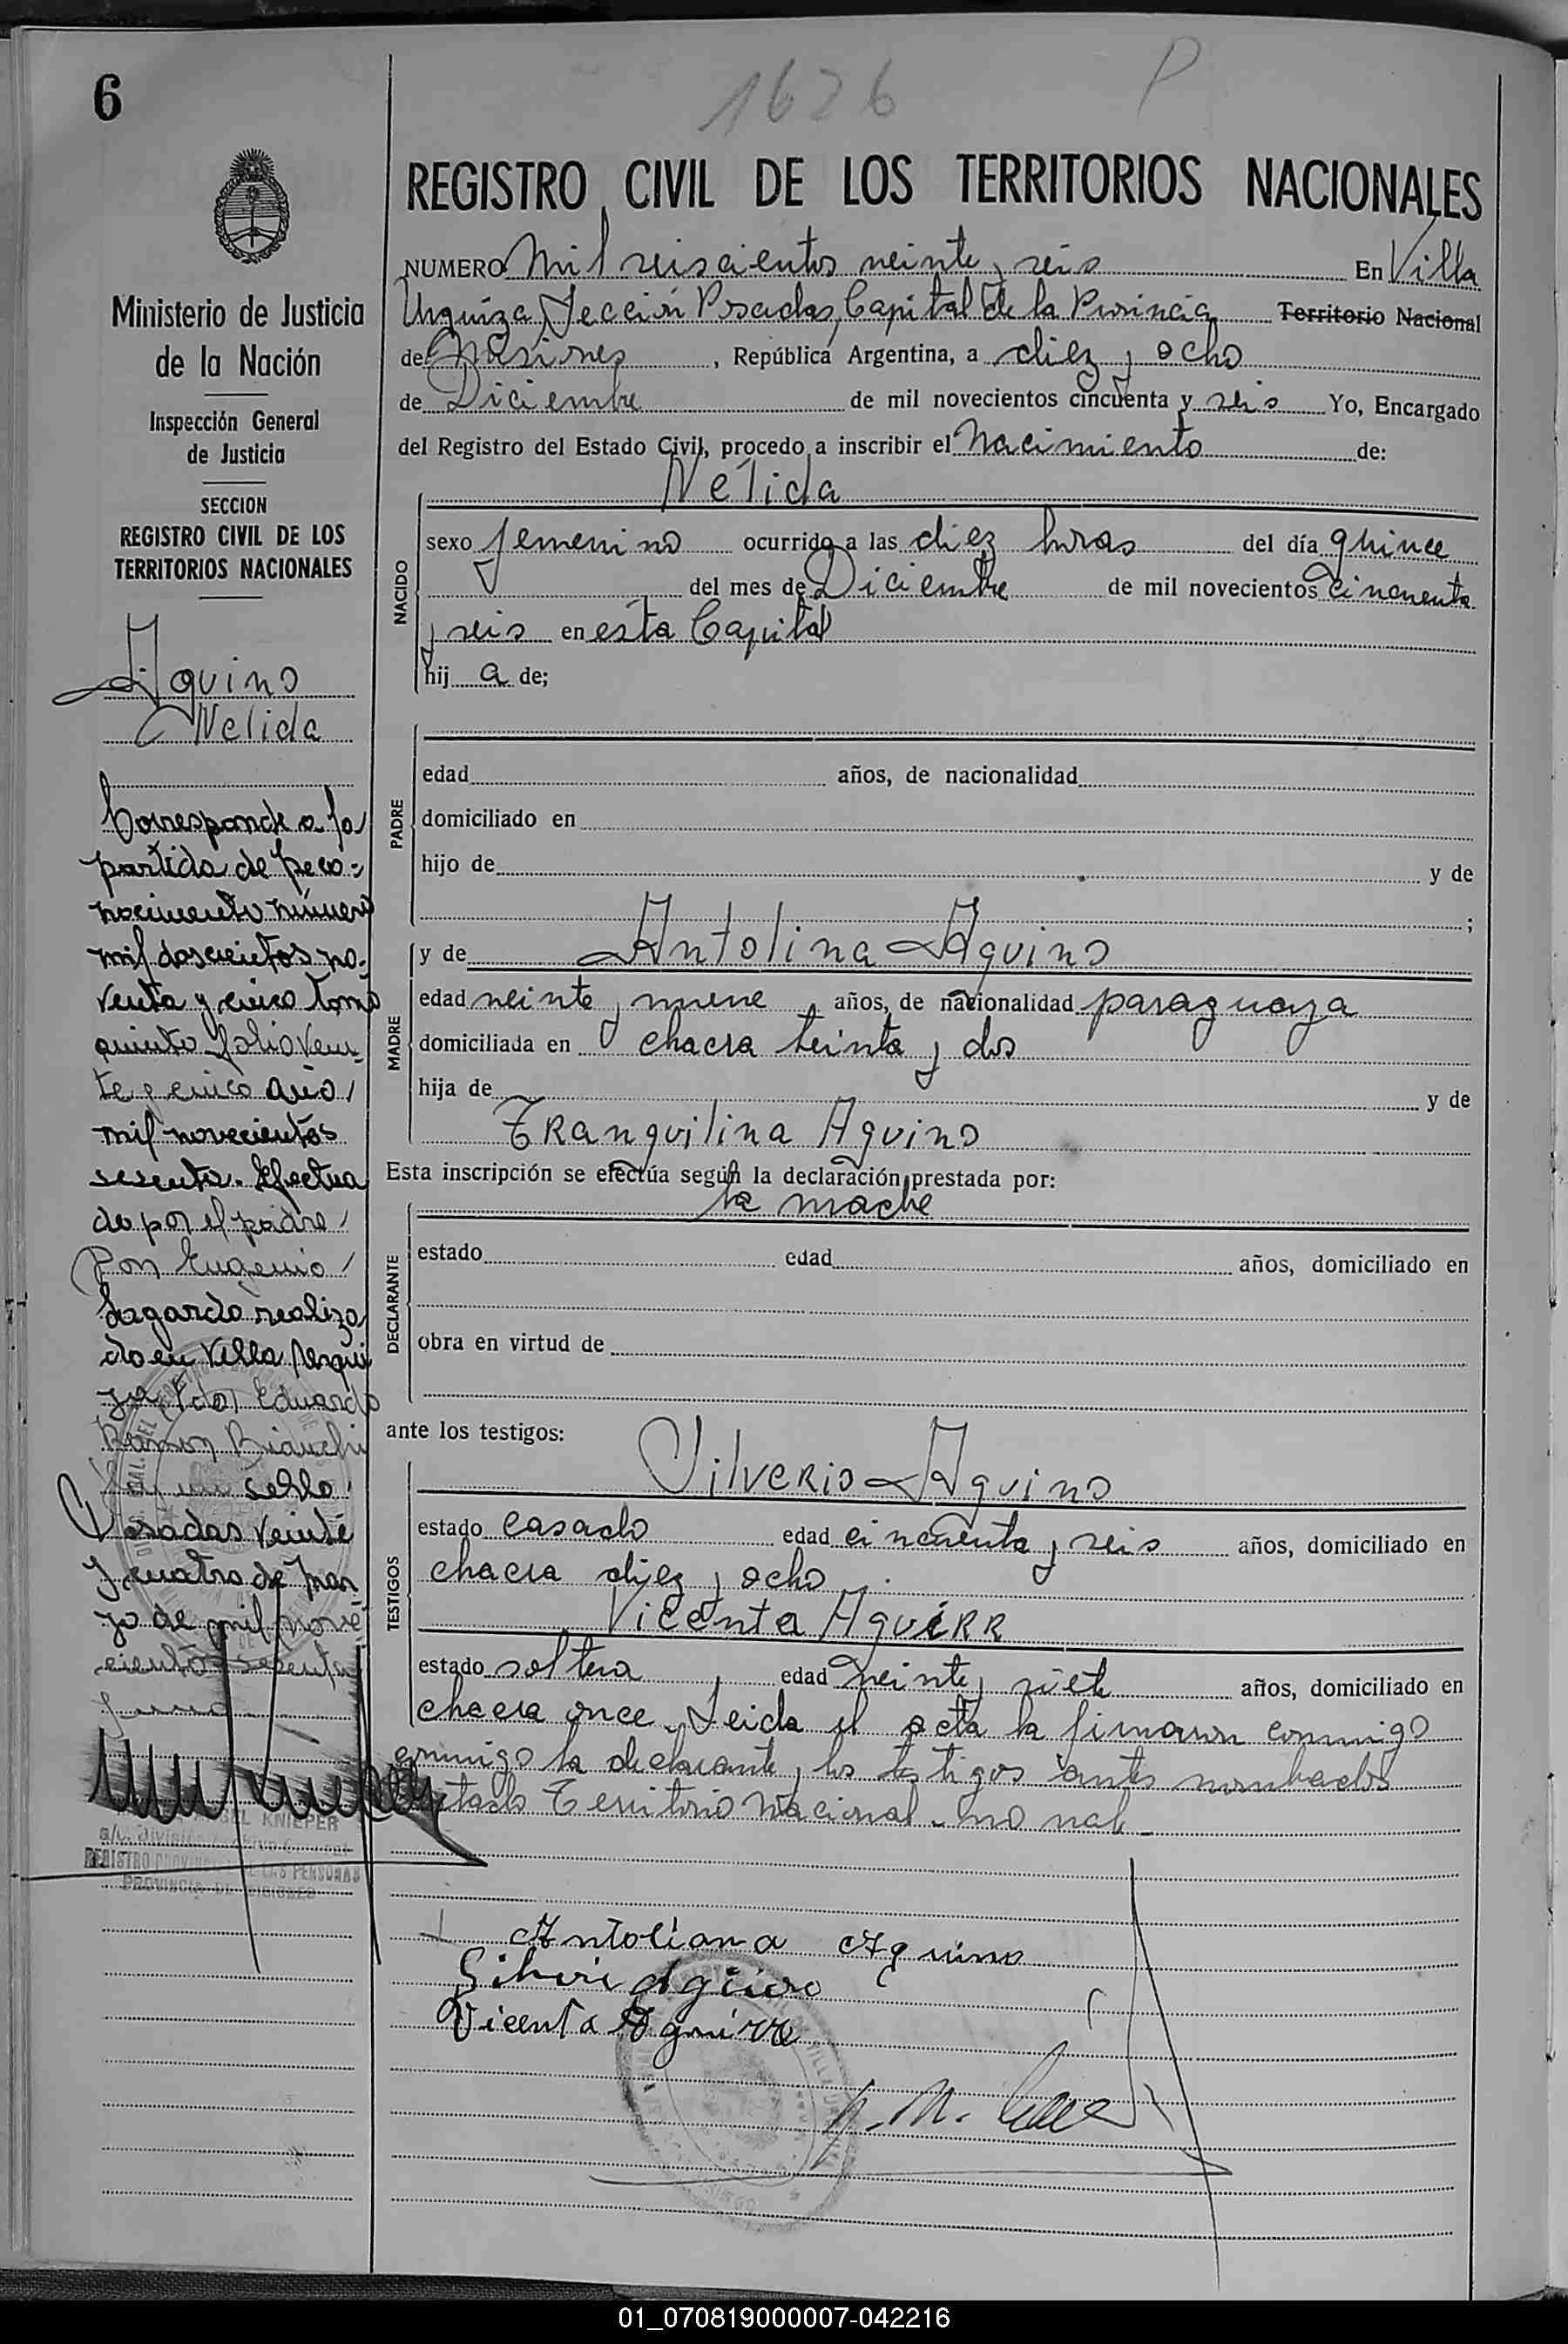 6
1626 P
REGISTRO CIVIL DE LOS TERRITORIOS NACIONALES
Ministerio de Justicia
de la Nación
Inspección General
de Justicia
SECCION
REGISTRO CIVIL DE LOS
TERRITORIOS NACIONALES
Aquino
Nelida
Corresponde a la
partida de reco=
nocimiento número
mil doscientos no-
venta y cinco tomo
quinto folio vein-
te y cinco año
mil novecientos
sesenta. Efectua
do por el padre
Don Eugenio
Lagardo realiza
do en Villa Urqui
za Fdo Eduardo
Ramon Bianchi
Hay un sello
Posadas veinte
y cuatro de mar
zo de mil nove
cientos sesenta
y uno
KNIEPER
REGISTRO PROVINCIAL DE LAS PERSONAS
PROVINCIA DE MISIONES
NUMERO Mil seiscientos veinte y seis En Villa
Urquiza Sección Posadas, Capital de la Provincia Territorio Nacional
de Misiones, República Argentina, a diez y ocho
de Diciembre de mil novecientos cincuenta y seis Yo, Encargado
del Registro del Estado Civil, procedo a inscribir el Nacimiento de:
Nélida
NACIDO
sexo femenino ocurrido a las diez horas del día quince
del mes de Diciembre de mil novecientos cincuenta
y seis en esta Capital
hij a de;
PADRE
edad años, de nacionalidad
domiciliado en
hijo de y de
;
MADRE
y de Antolina Aquino
edad veinte y nueve años, de nacionalidad paraguaya
domiciliada en chacra treinta y dos
hija de y de
Tranquilina Aquino
Esta inscripción se efectúa según la declaración prestada por:
la madre
DECLARANTE
estado edad años, domiciliado en
obra en virtud de
ante los testigos:
TESTIGOS
Silverio Aquino
estado casado edad cincuenta y seis años, domiciliado en
chacra diez y ocho
Vicenta Aguirr
estado soltera edad veinte y siete años, domiciliado en
chacra once. Leida el acta la firmaron conmigo
conmigo la declarante y los testigos antes nombrados
Testado Territorio Nacional - no vale -
Antoliana Aquino
Vicenta Aguirre
01_070819000007-042216